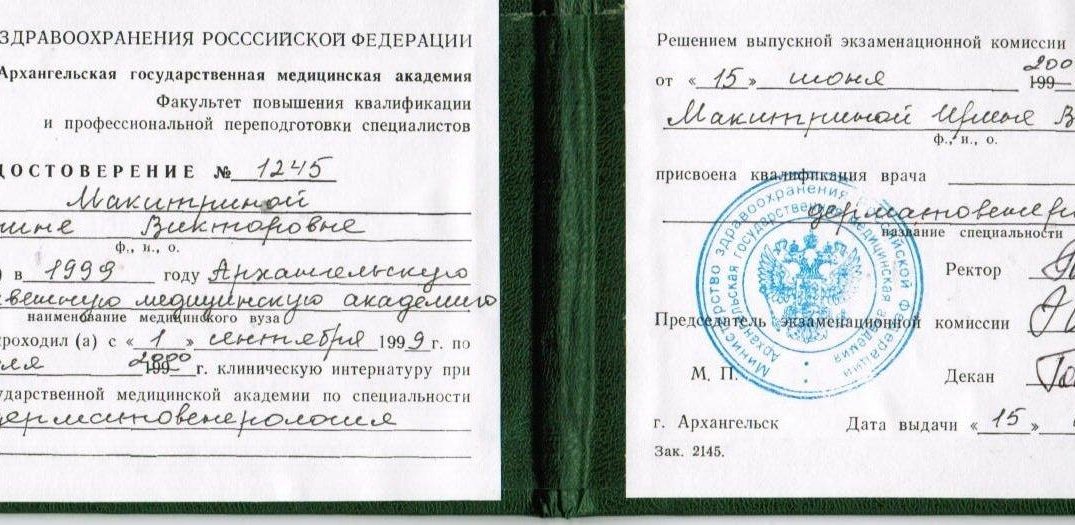 ЗДРАВООХРАНЕНИЯ РОСССИЙСКОЙ ФЕДЕРАЦИИ
Архангельская государственная медицинская академия
Факультет повышения квалификации
и профессиональной переподготовки специалистов
ДОСТОВЕРЕНИЕ № 1245
Макитриной
рине Викторовне
ф., и., о.
) в 1999 году Архангельскую
венную медицинскую академию
наименование медицинского вуза
роходил (а) с « 1 » сентября 1999 г. по
ля 2000 г. клиническую интернатуру при
ударственной медицинской академии по специальности
дерматовенерология
Решением выпускной экзаменационной комиссии
от « 15 » июня 200
199
Макитриной Ирине В
ф., и., о.
присвоена квалификация врача
дерматовенеро
название специальности
Ректор
Председатель экзаменационной комиссии
М. П.
Декан
г. Архангельск Дата выдачи « 15 »
Зак. 2145.
Министерство здравоохранения Российской Федерации
Архангельская государственная медицинская академия